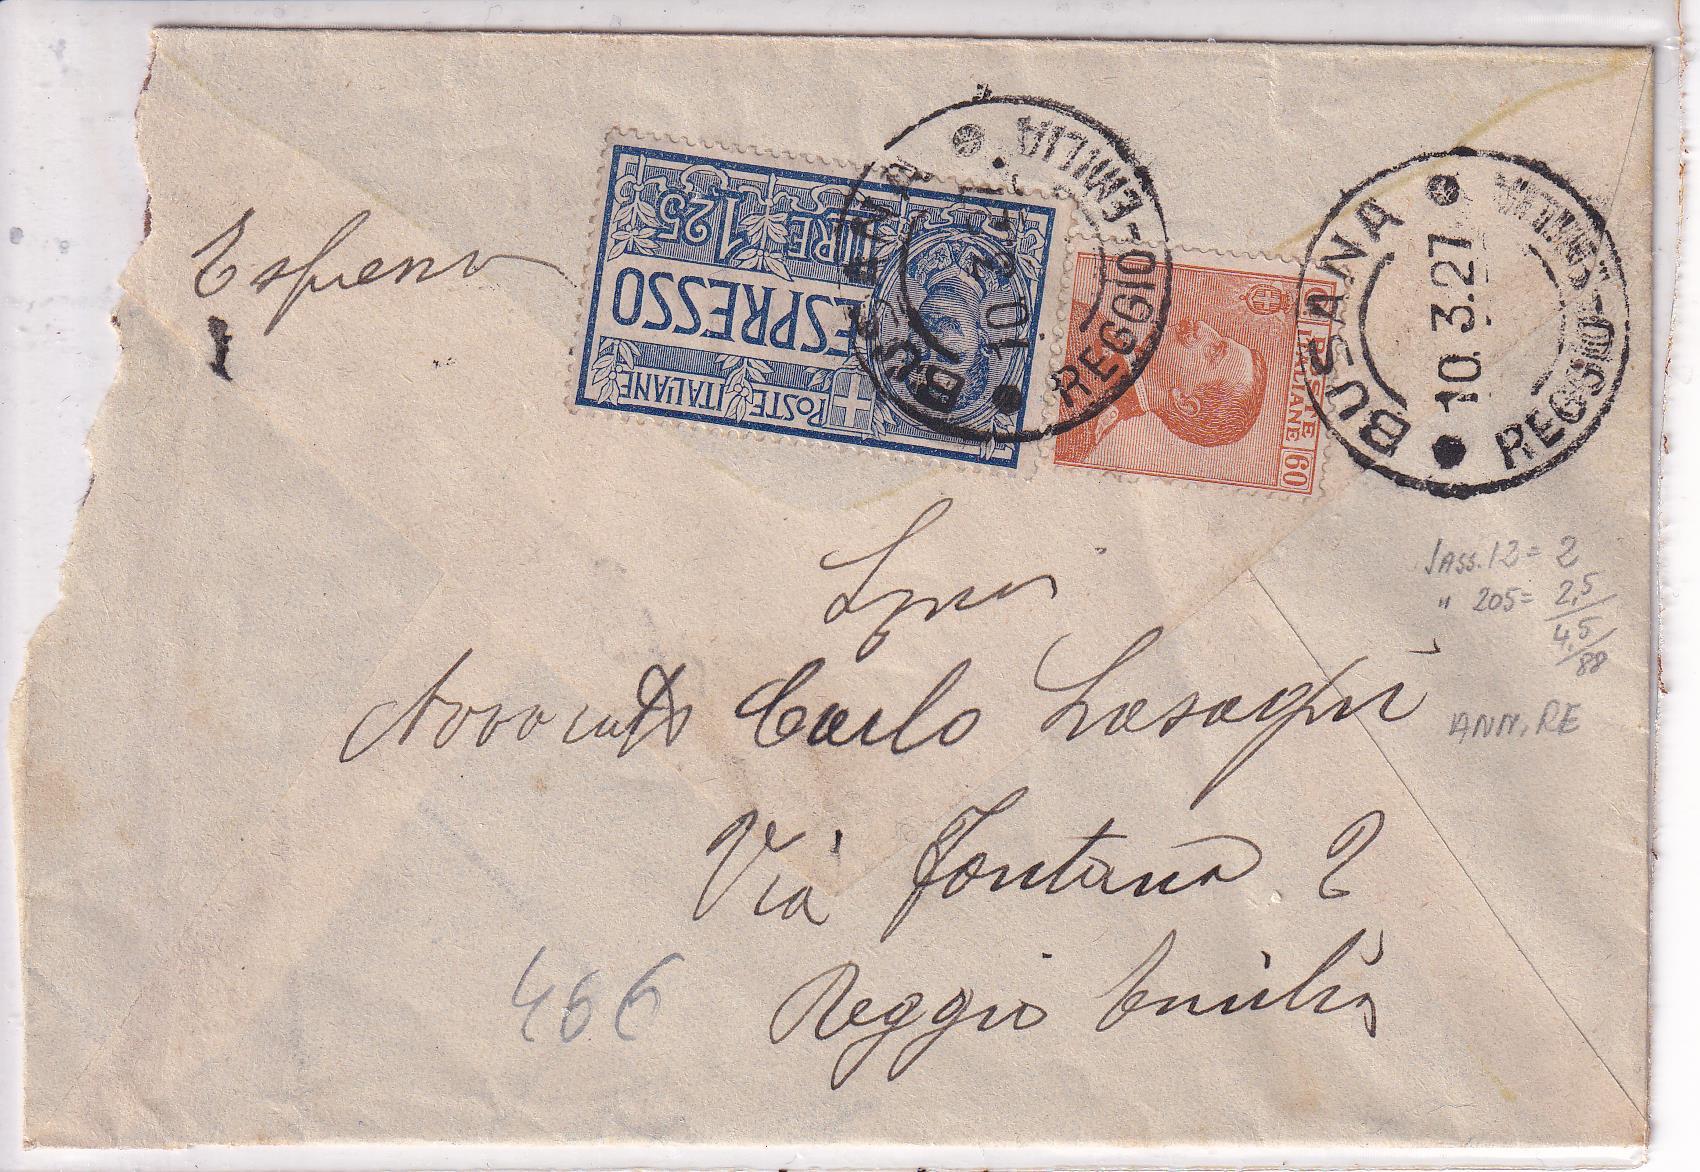 Espresso
LIRE 1,25
ESPRESSO
POSTE ITALIANE
BUSANA
10.3.27
REGGIO-EMILIA
POSTE
ITALIANE
60
BUSANA
10.3.27
REGGIO-EMILIA
SASS. 12 = 2
" 205 = 2,5
4,5
88
ANN. RE
Avvocato Carlo Lasagni
Via Fontana 2
466
Reggio Emilia